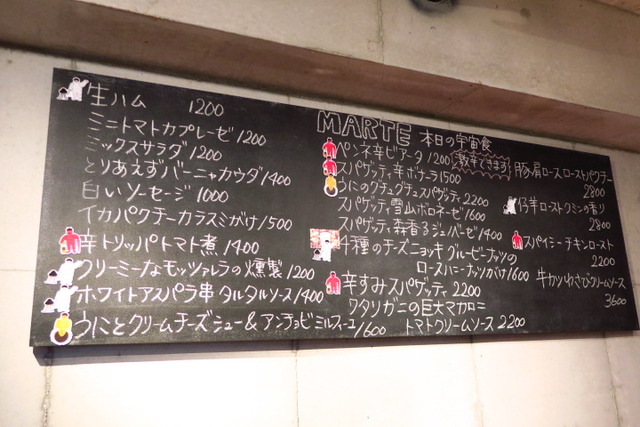 生ハム 1200
ミニトマトカプレーゼ 1200
ミックスサラダ 1200
とりあえずバーニャカウダ 1400
白いソーセージ 1000
イカパクチーカラスミがけ 1500
辛トリッパトマト煮 1400
クリーミーなモッツァレラの燻製 1200
ホワイトアスパラ串タルタルソース 1400
うにとクリームチーズシュー&アンチョビミルフィーユ 1600
MARTE 本日の宇宙食
ペンネ辛ビアータ 1200 激辛できます
スパゲッティ辛ボナーラ 1500
うにのグチュグチュスパゲッティ 2200
スパゲッティ雪山ボロネーゼ 1600
スパゲッティ森香るジェノバーゼ 1400
4種のチーズニョッキ グルービーナッツの
ローストハニーナッツがけ 1600
辛すみスパゲッティ 2200
ワタリガニの巨大マカロニ
トマトクリームソース 2200
豚肩ロースローストパクチー
2800
仔羊ローストクミンの香り
2800
スパイシーチキンロースト
2200
牛カツわさびクリームソース
3600